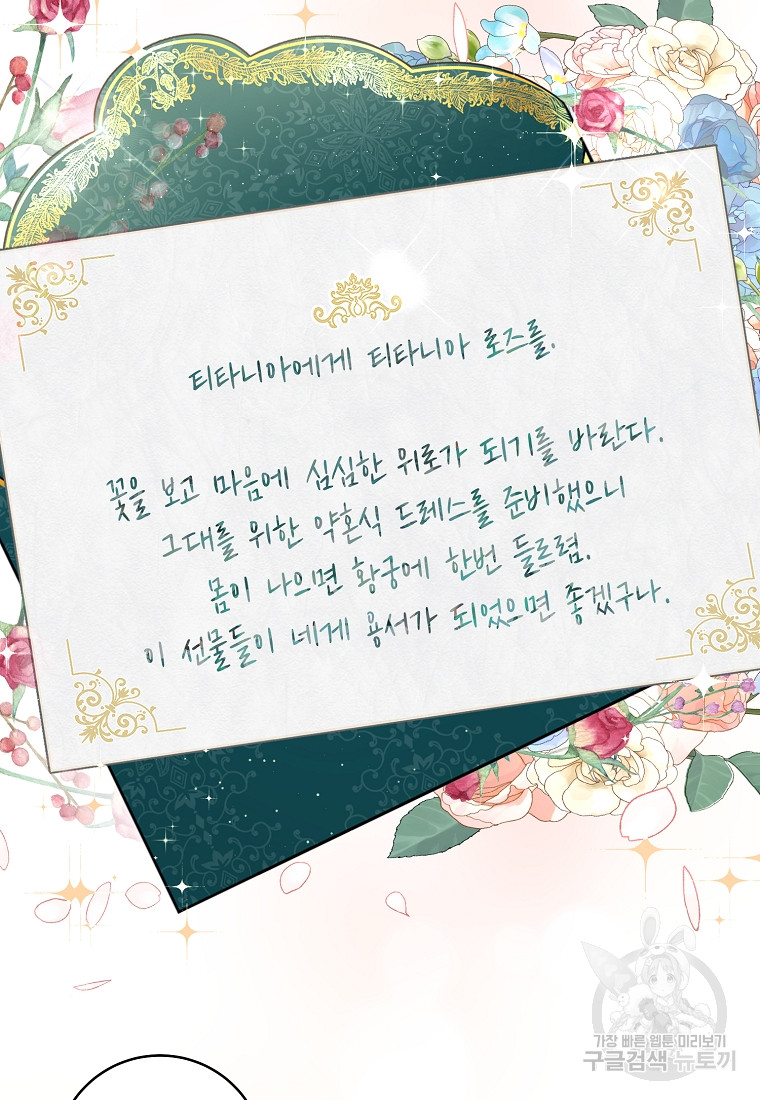 티타니아에게 티타니아 로즈를.
꽃을 보고 마음에 심심한 위로가 되기를 바란다.
그대를 위한 약혼식 드레스를 준비했으니
몸이 나으면 황궁에 한번 들르렴.
이 선물들이 네게 용서가 되었으면 좋겠구나.
가장 빠른 웹툰 미리보기
구글검색 뉴토끼